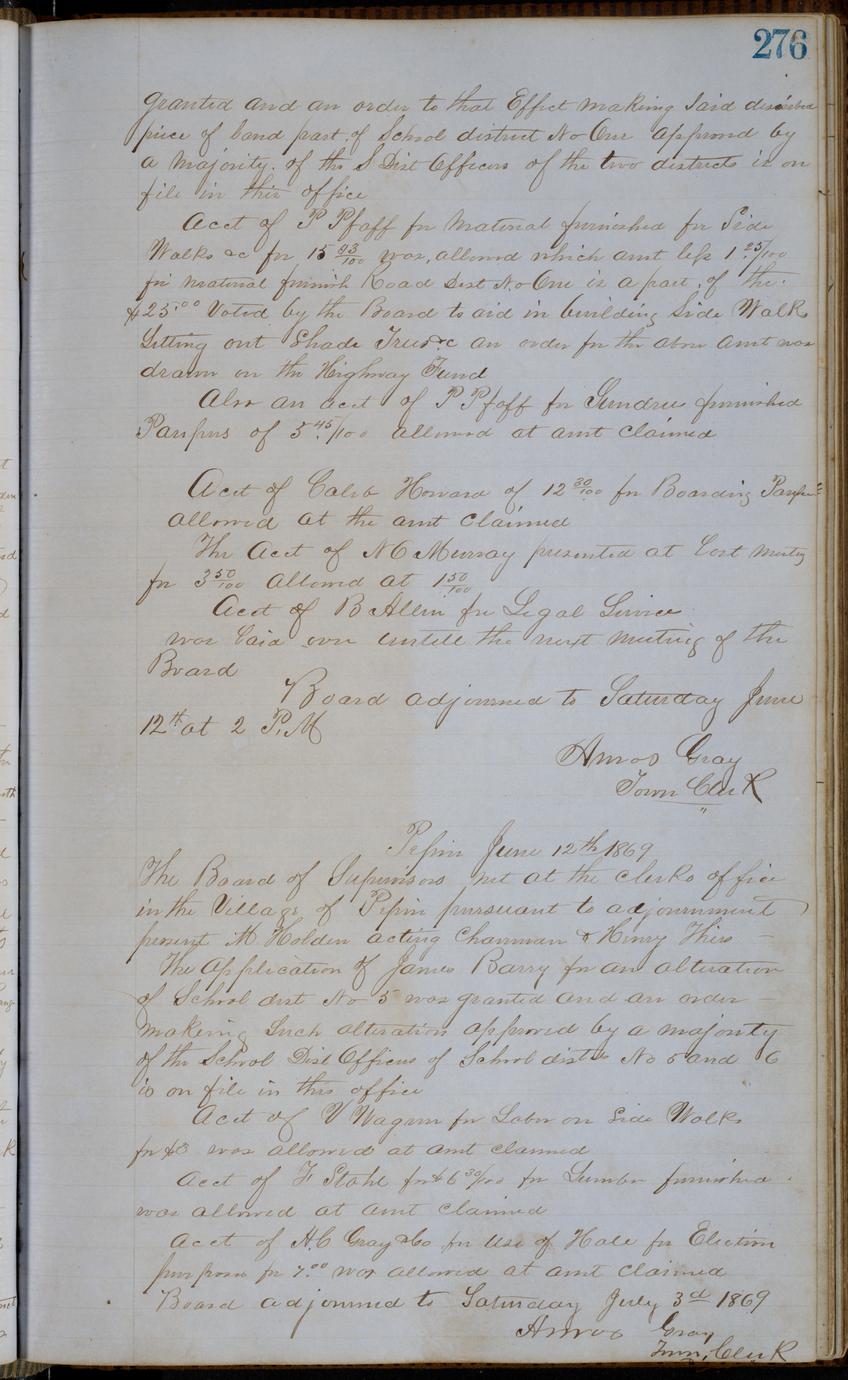 276
granted and an order to that Effect making Said described
piece of land part of School district No One approved by
a Majority of the S Dist Officers of the two districts is on
file in this office
Acct of P Pfaff for Material furnished for Side
Walks &c for 15 93/100 was allowed which amt less 1 25/100
for material furnish Road Dist No One is a part of the
$25.00 Voted by the Board to aid in building Side Walks
Setting out Shade Trees &c an order for the above amt was
drawn on the Highway Fund
Also an acct of P Pfaff for Sundries furnished
Paupers of 5 45/100 allowed at amt claimed
Acct of Caleb Howard of 12 30/100 for Boarding Paupers
allowed at the amt claimed
The Acct of N C Murray presented at Last Meeting
for 3 50/100 allowed at 1 50/100
Acct of B Allen for Legal Service
was laid over untill the next meeting of the
Board
Board adjourned to Saturday June
12th at 2 P.M
Amos Gray
Town Clerk
Pepin June 12th 1869
The Board of Supervisors met at the clerks office
in the Village of Pepin pursuant to adjournment
present M Holden acting Chairman & Henry Thirs
The Application of James Barry for an alteration
of School dist No 5 was granted and an order
making Such alteration approved by a majority
of the School Dist Officers of School dists No 5 and 6
is on file in this office
Acct of V Wagner for Labor on Side Walks
for $3 was allowed at amt claimed
Acct of F Stahl for $6 30/100 for Lumber furnished
was allowed at amt claimed
Acct of H.C Gray & Co for Use of Hale for Election
purposes for 7.00 was allowed at amt claimed
Board adjourned to Saturday July 3d 1869
Amos Gray
Town Clerk